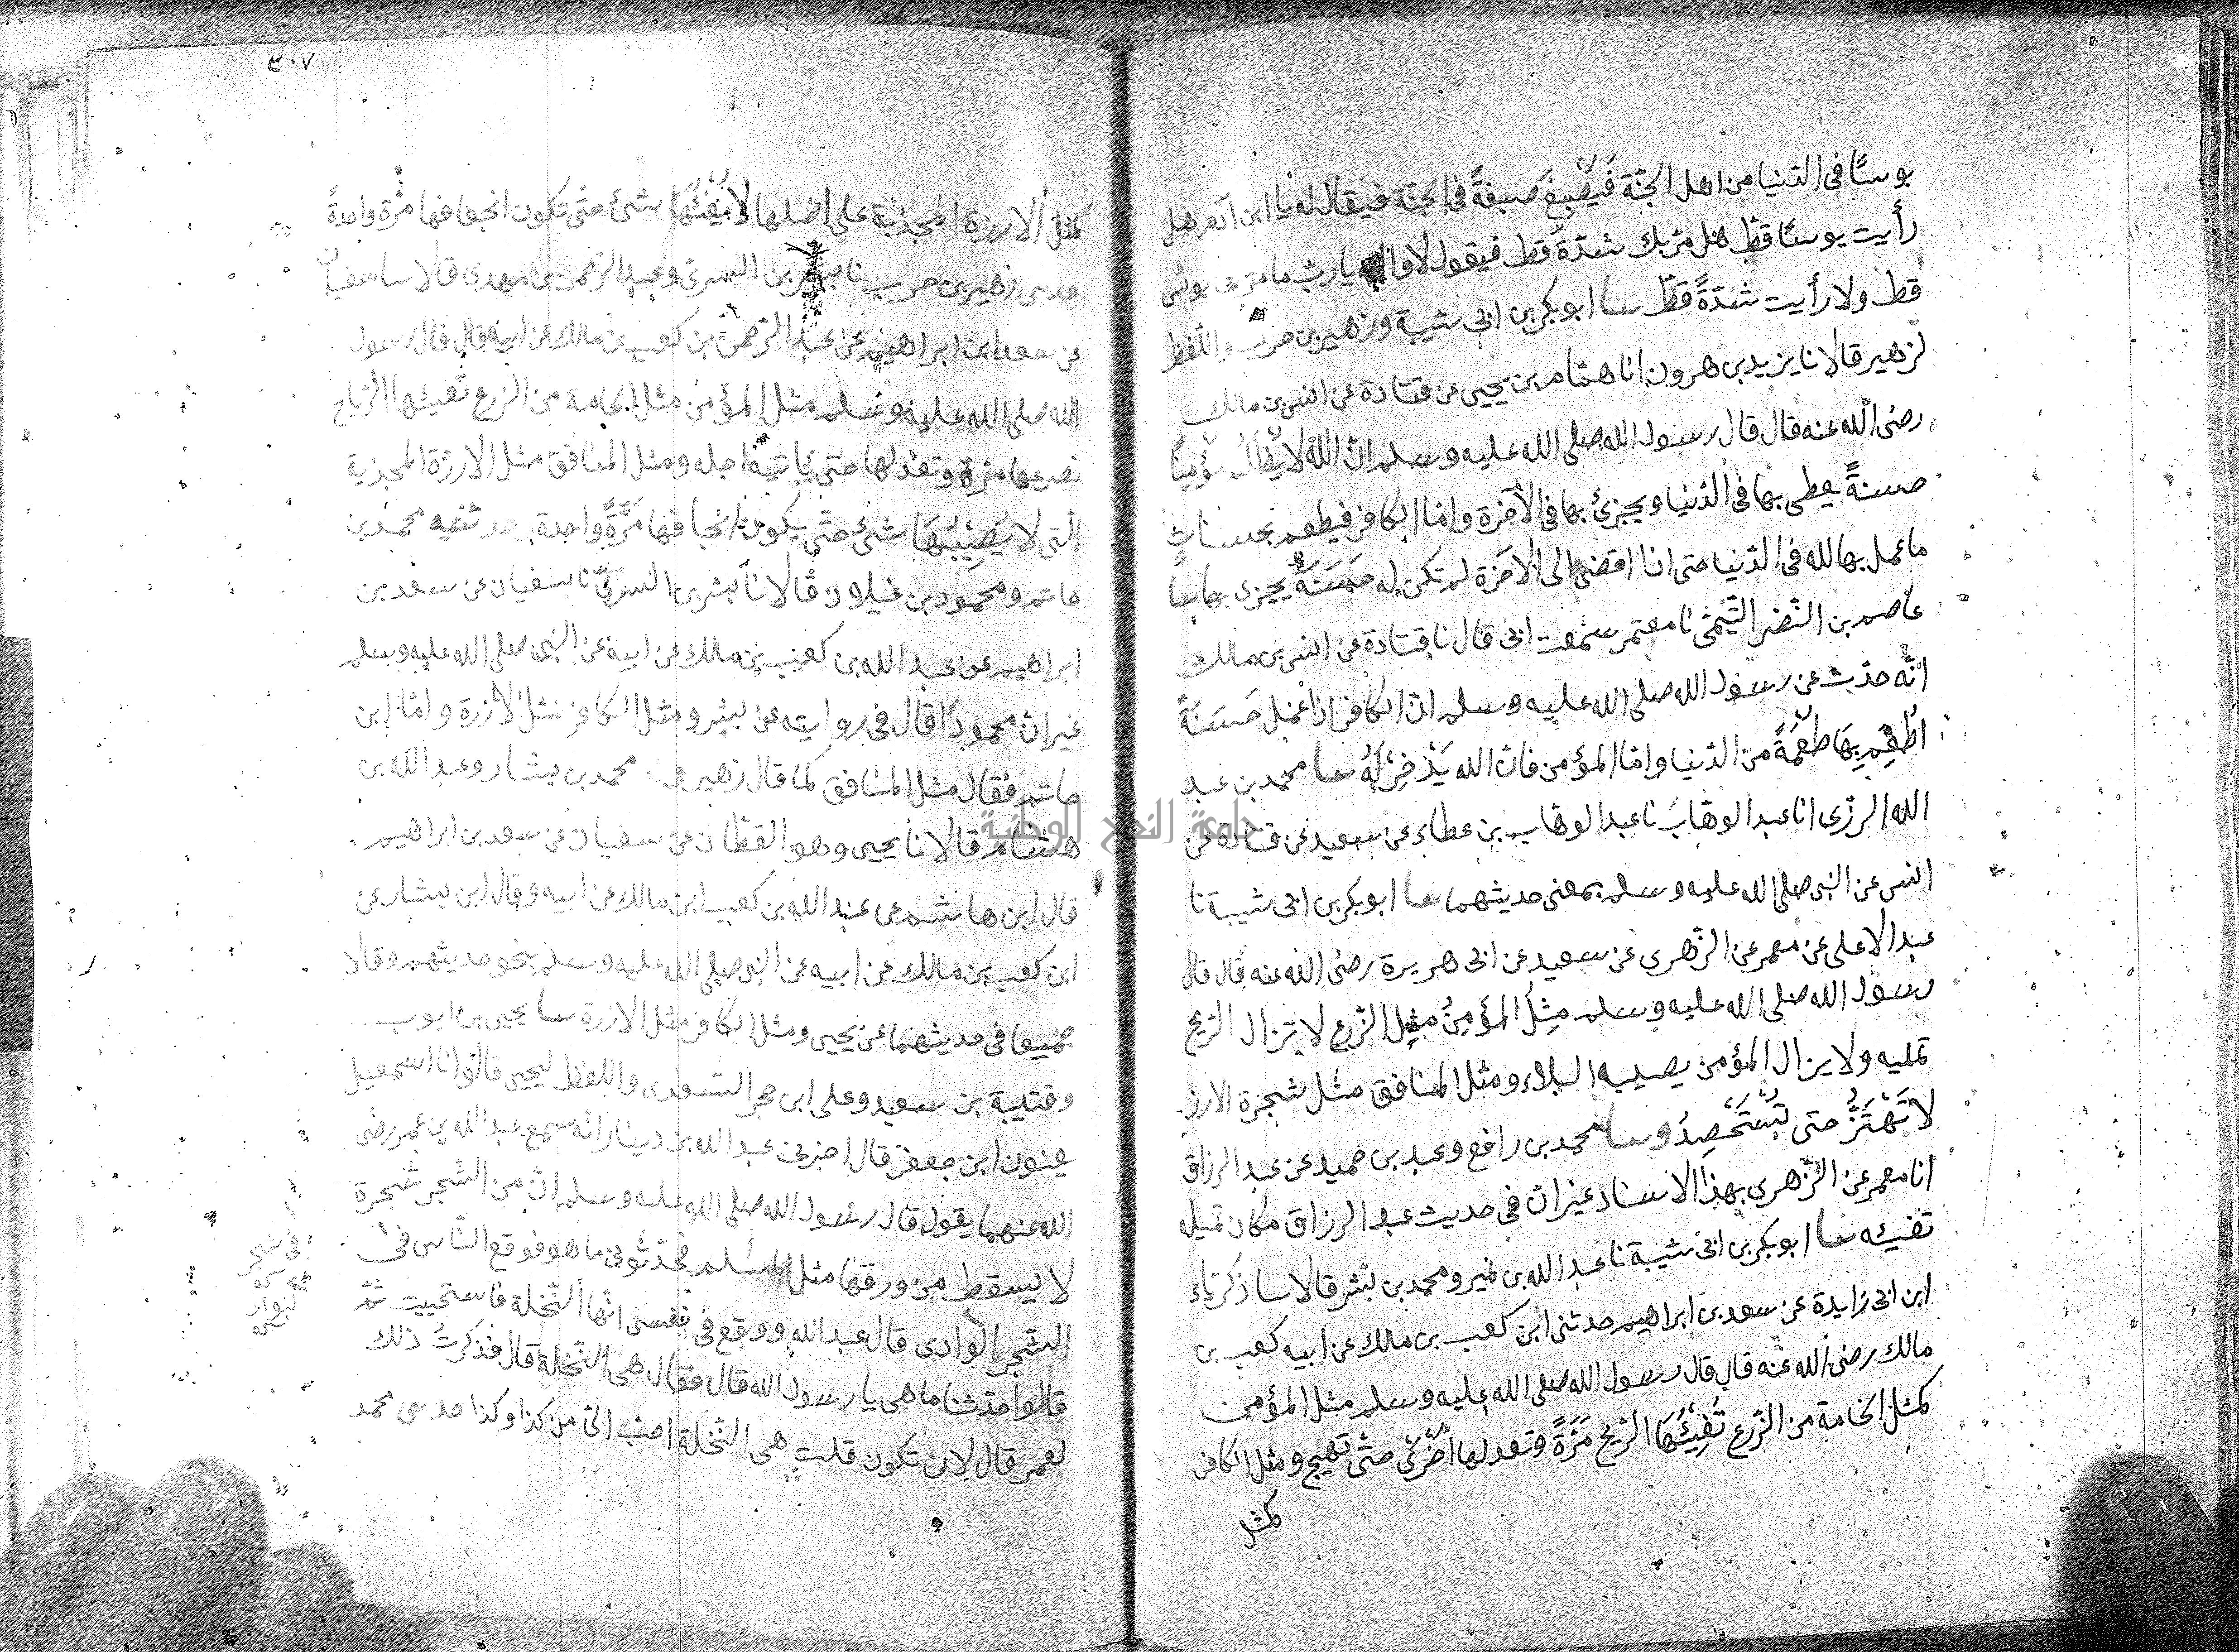 بوسًا فى الدنيا من اهل الجنة فَيُصْبَغُ صبغةً فى الجنة فيقال له يا ابن آدم هل
رأيت بوسًا قط هل مرّ بك شدّةٌ قط فيقول لا والله يارب ما مرّ بى بوس
قط ولا رأيت شدّةً قطّ سا ابو بكر بن ابى شيبة وزهير بن حرب واللفظ
لزهير قالا نا يزيد بن هرون انا همّام بن يحيى عن قتادة عن انس بن مالك
رضى الله عنه قال قال رسول الله صلى الله عليه وسلم ان الله لا يَظْلِمُ مؤمنًا
حسنةً يعطى بها فى الدنيا ويجزئ بها فى الآخرة وامّا الكافر فيطعم بحسناتِ
ما عمل بها لله فى الدنيا حتى اذا افضى الى الآخرة لم تكن له حَسَنَةٌ يجزى بها سا
عاصم بن النضر التيمى نا معتمر سمعت ابى قال نا قتادة عن انس بن مالك
انّه حدّث عن رسول الله صلى الله عليه وسلم انّ الكافر اذا عَمل حَسَنَةً
اُطْعِمَ بِهَا طُعْمَةً من الدنيا وامّا المؤمن فان الله يَدَّخِرُ لَهُ سا محمد بن عبد
الله الرزّى انا عبد الوهاب نا عبد الوهاب بن عطاء عن سعيد عن قتادة عن
انس عن النبى صلى الله عليه وسلم بمعنى حديثهما سا ابو بكر بن ابى شيبة نا
عبد الاعلى عن معمر عن الزهرى عن سعيد عن ابى هريرة رضى الله عنه قال قال
رسول الله صلى الله عليه وسلم مثل المؤمن مثل الزّرع لا تزال الريح
تميله ولا يزال المؤمن يصيبه البلاء ومثل المنافق مثل شجرة الارز
لا تَهْتَزُّ حتى تُسْتَحْصِدُ وسا محمد بن رافع وعبد بن حميد عن عبد الرزاق
انا معمر عن الزهرى بهذا الاسناد غير انّ فى حديث عبد الرزاق مكان تميله
تفيئه سا ابو بكر بن ابى شيبة نا عبد الله بن نمير ومحمد بن بشر قالا سا ذكرياء
ابن ابى زايدة عن سعد بن ابراهيم حدثنى ابن كعب بن مالك عن ابيه كعب بن
مالك رضى الله عنه قال قال رسول الله صلى الله عليه وسلم مثل المؤمن
كمثل الخامة من الزّرع تُفِيْئُهَا الريح مَرَّةً وتعدلها اُخْرَى حتّى تهيج ومثل الكافر
كمثل
٣٠٧
كمثل الارزة المجذية على اصلها لا يُفِيْئُهَا شئ حتّى تكون انجعافها مرّة واحدةً
حدسى زهير بن حرب نا بشر بن السرىّ وعبد الرحمن بن مهدى قالا سا سفيان
عن سعد ابن ابراهيم عن عبد الرّحمن بن كعب بن مالك عن ابيه قال قال رسول
الله صلى الله عليه وسلم مثل المؤمن مثل الخامة من الزرع تفيئها الرياح
تصرعها مرّة وتعدلها حتى ياتيه اجله ومثل المنافق مثل الارزة المجذية
الّتى لا يُصِيْبُهَا شئ حتّى يكون انجعافها مَرَّةً واحدة حدثنيه محمد بن
حاتم ومحمود بن غيلان قالا نا بشر بن السرىّ نا سفيان عن سعد بن
ابراهيم عن عبد الله بن كعب بن مالك عن ابيه عن النبى صلى الله عليه وسلم
غير انّ محمودًا قال فى روايته عن بشر ومثل الكافر مثل الازرة وامّا ابن
حاتم فقال مثل المنافق كما قال زهير محمد بن بشار وعبد الله بن
هشام قالا نا يحيى وهو القطّان عن سفيان عن سعد بن ابراهيم
قال ابن هاشم عن عبد الله بن كعب ابن مالك عن ابيه وقال ابن بشار عن
ابن كعب بن مالك عن ابيه عن النبى صلى الله عليه وسلم بنحو حديثهم وقالا
جميعا فى حديثهما عن يحيى ومثل الكافر مثل الازرة سا يحيى بن ايوب
وقتيبة بن سعيد وعلى ابن حجر السّعدى واللفظ ليحيى قالوا نا اسمعيل
يعنون ابن جعفر قال اخبرنى عبد الله بن دينار انّه سمع عبد الله بن عمر رضى
الله عنهما يقول قال رسول الله صلى الله عليه وسلم انّ من الشّجر شجرة
لا يسقط من ورقها مثل المسلم فحدّثونى ما هو فوقع النّاس فى
الشجر الوادى قال عبد الله ووقع فى نفسى انّها النّخلة فاستحييت ثمّ
قالوا حدّثنا ما هى يا رسول الله قال فقال هى النّخلة قال فذكرتُ ذلك
لعمر قال لان تكون قلت هى النّخلة احبّ الىّ من كذا وكذا حدسى محمد
فى شجر
البواد
جامعة النجاح الوطنية